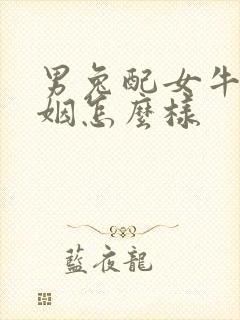 男兔配女牛
姻怎麼樣
藍夜龍